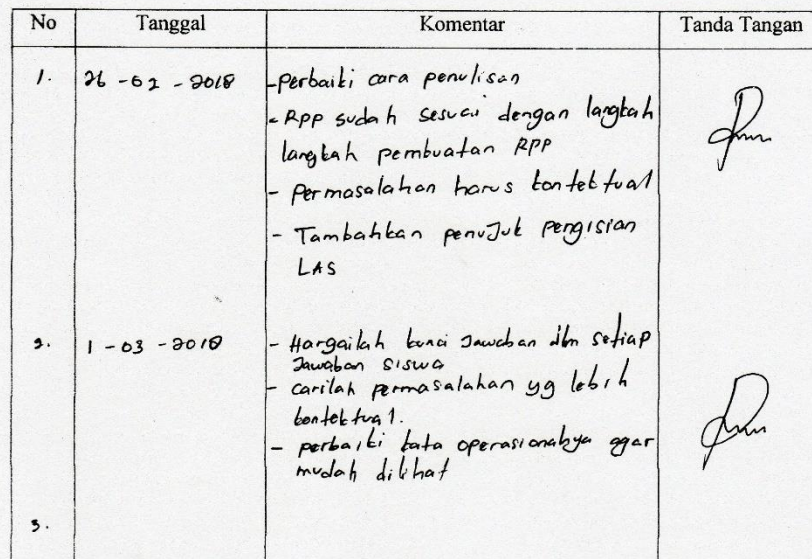 No Tanggal Komentar Tanda Tangan
1. 26 - 02 - 2018 - Perbaiki cara penulisan
- RPP sudah sesuai dengan langkah
langkah pembuatan RPP
- Permasalahan harus kontektual
- Tambahkan penuJuk pengisian
LAS
2. 1 - 03 - 2018 - Hargailah kunci Jawaban dlm setiap
Jawaban siswa
- carilah permasalahan yg lebih
kontektual.
- perbaiki kata operasionalnya agar
mudah dilihat
3.